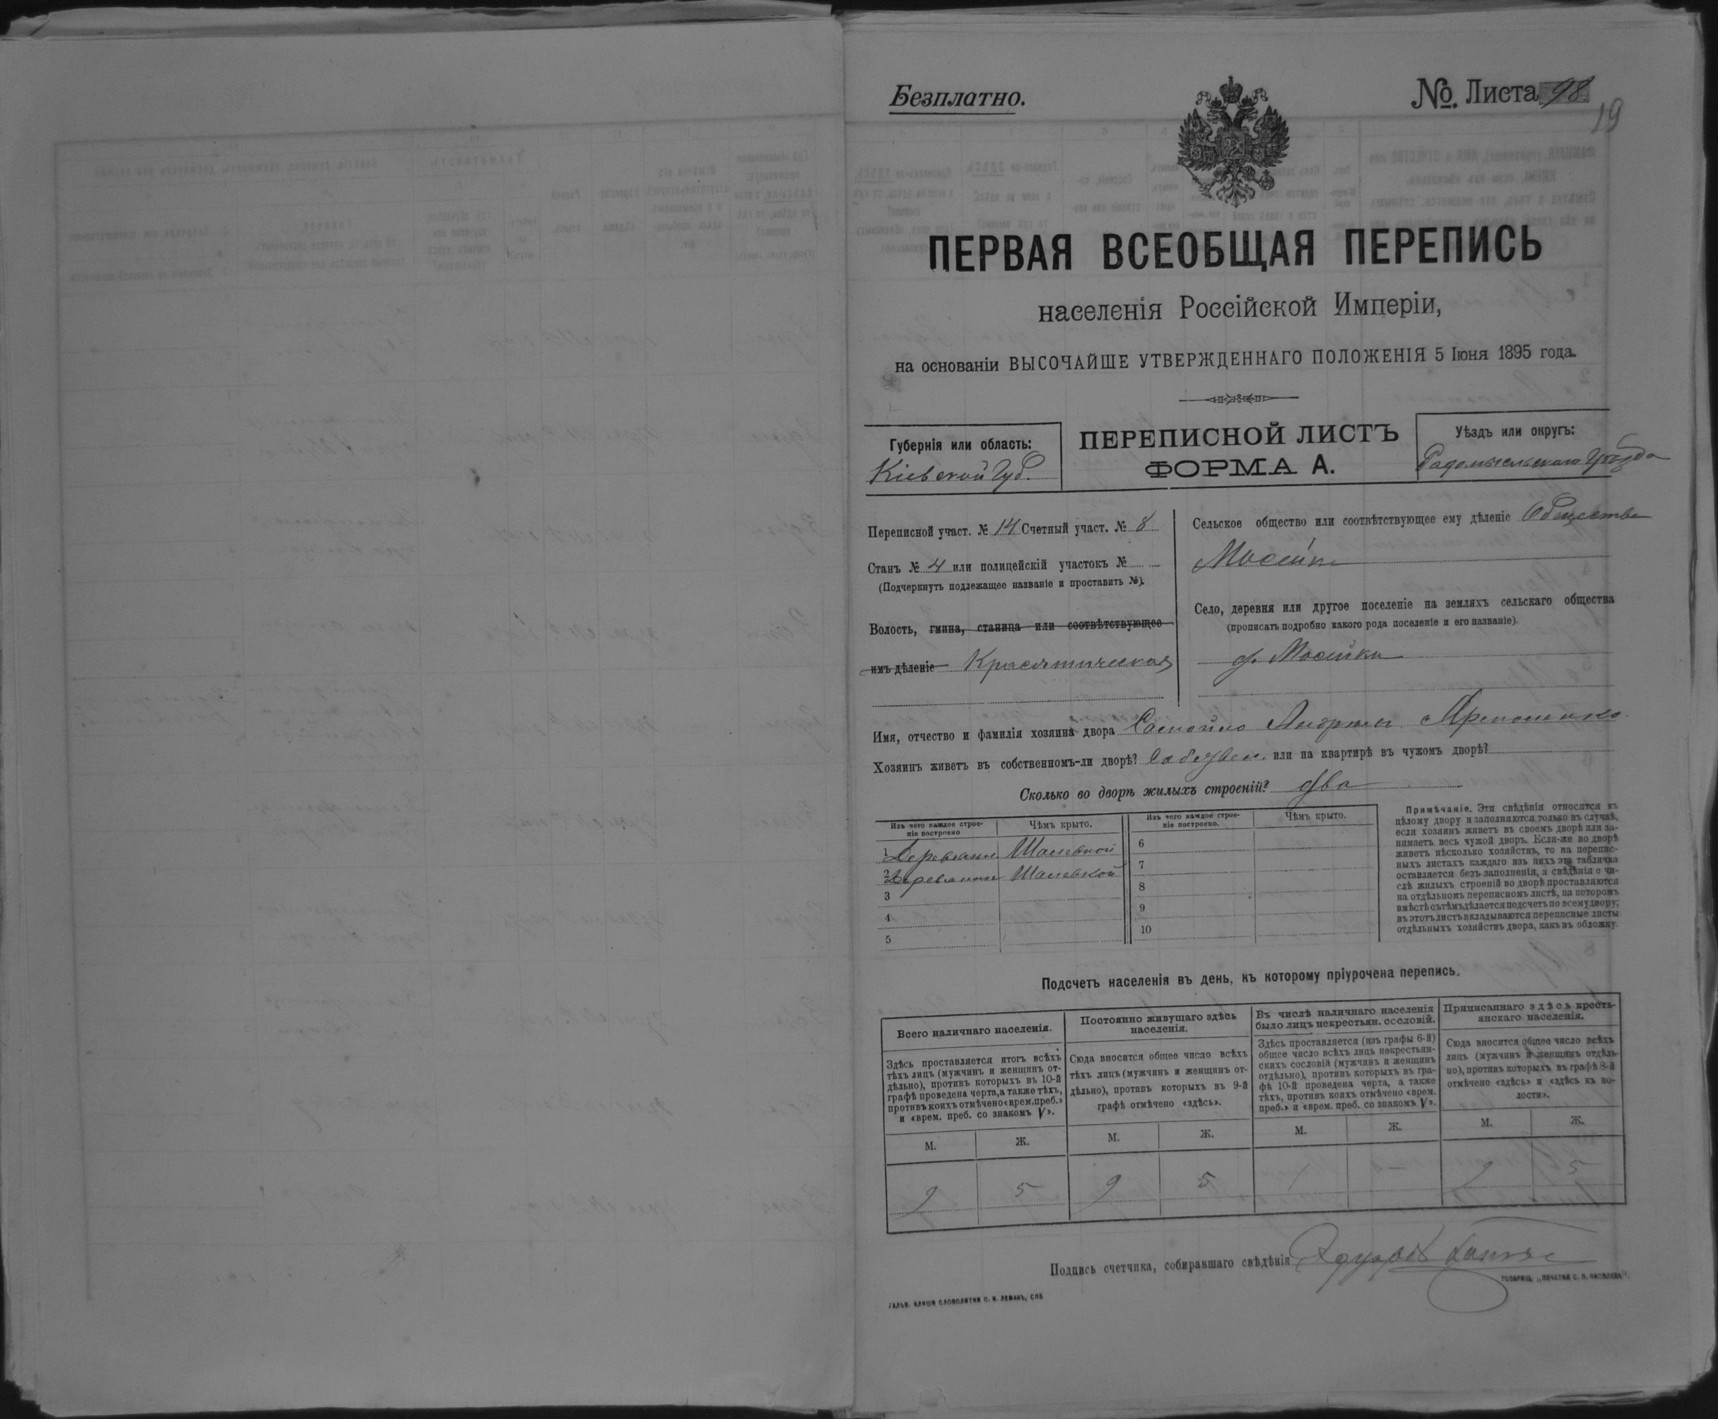 Безплатно.
№. Листа 98
19
ПЕРВАЯ ВСЕОБЩАЯ ПЕРЕПИСЬ
населенія Россійской Имперіи,
на основаніи ВЫСОЧАЙШЕ УТВЕРЖДЕННАГО ПОЛОЖЕНІЯ 5 Іюня 1895 года.
Губернія или область:
Кіевской Губ.
ПЕРЕПИСНОЙ ЛИСТЪ
ФОРМА А.
Уѣздъ или округъ:
Радомысльскаго Уѣзда
Переписной участ. № 14 Счетный участ. № 8
Станъ № 4 или полицейскій участокъ №
(Подчеркнуть подлежащее названіе и проставить №).
Волость, гмина, станица или соотвѣтствующее
имъ дѣленіе Красятическая
Сельское общество или соотвѣтствующее ему дѣленіе Общества
Мосейки
Село, деревня или другое поселеніе на земляхъ сельскаго общества
(прописать подробно какого рода поселеніе и его названіе).
д. Мосейки
Имя, отчество и фамилія хозяина двора
Хозяинъ живетъ въ собственномъ-ли дворѣ? или на квартирѣ въ чужомъ дворѣ?
Сколько во дворѣ жилыхъ строеній? два
Изъ чего каждое строе-
ніе построено
Чѣмъ крыто.
Изъ чего каждое строе-
ніе построено.
Чѣмъ крыто.
1
2
3
4
5
6
7
8
9
10
Примѣчаніе. Эти свѣдѣнія относятся къ
цѣлому двору и заполняются только въ случаѣ,
если хозяинъ живетъ въ своемъ дворѣ или за-
нимаетъ весь чужой дворъ. Если-же во дворѣ
живетъ нѣсколько хозяйствъ, то на перепис-
ныхъ листахъ каждаго изъ нихъ эта табличка
оставляется безъ заполненія, а свѣдѣнія о чи-
слѣ жилыхъ строеній во дворѣ проставляются
на отдѣльномъ переписномъ листѣ, на которомъ
вмѣстѣ съ тѣмъ дѣлается подсчетъ по всему двору;
въ этотъ листъ вкладываются переписные листы
отдѣльныхъ хозяйствъ двора, какъ въ обложку.
Подсчетъ населенія въ день, къ которому пріурочена перепись.
Всего наличнаго населенія.
Постоянно живущаго здѣсь
населенія.
Въ числѣ наличнаго населенія
было лицъ некрестьян. сословій.
Приписаннаго здѣсь кресть-
янскаго населенія.
Здѣсь проставляется итогъ всѣхъ
тѣхъ лицъ (мужчинъ и женщинъ от-
дѣльно), противъ которыхъ въ 10-й
графѣ проведена черта, а также тѣхъ,
противъ коихъ отмѣчено «врем. преб.»
и «врем. преб. со знакомъ V».
Сюда вносится общее число всѣхъ
тѣхъ лицъ (мужчинъ и женщинъ от-
дѣльно), противъ которыхъ въ 9-й
графѣ отмѣчено «здѣсь».
Здѣсь проставляется (изъ графы 6-й)
общее число всѣхъ лицъ некрестьян-
скихъ сословій (мужчинъ и женщинъ
отдѣльно), противъ которыхъ въ гра-
фѣ 10-й проведена черта, а также
тѣхъ, противъ коихъ отмѣчено «врем.
преб.» и «врем. преб. со знакомъ V».
Сюда вносится общее число всѣхъ
лицъ (мужчинъ и женщинъ отдѣль-
но), противъ которыхъ въ графѣ 8-й
отмѣчено «здѣсь» и «здѣсь въ во-
лости».
М. Ж. М. Ж. М. Ж. М. Ж.
2 5 2 5 2 5
Подпись счетчика, собиравшаго свѣдѣнія